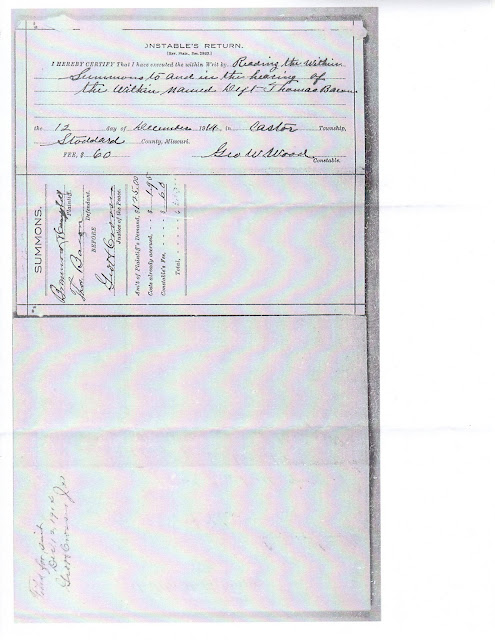 ONSTABLE'S RETURN.
I HEREBY CERTIFY That I have executed the within Writ by Reading the Within
Summons to and in the hearing of
the Within named Deft Thomas Bacon
the 12 day of December 1914, in Castor Township,
Stoddard County, Missouri.
FEE, $ 60 Geo W Wood
Constable.
SUMMONS.
Plaintiff.
Tho Bacon Defendant.
BEFORE
Justice of the Peace.
Am't of Plaintiff's Demand, $175.00
Costs already accrued, $ 1 95
Constable's fee, $ 60
Total,
Filed for suit
Dec 12 1914